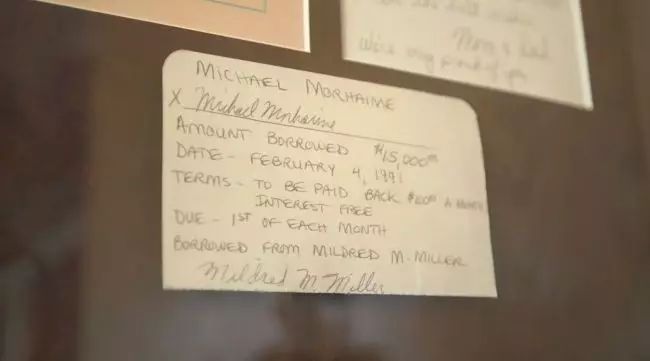 MICHAEL MORHAIME
X Michael Morhaime
AMOUNT BORROWED $15,000⁰⁰
DATE - FEBRUARY 4, 1991
TERMS - TO BE PAID BACK A MONTH
INTEREST FREE
DUE - 1ST OF EACH MONTH
BORROWED FROM MILDRED M. MILLER
Mildred M. Miller
Mom & Dad